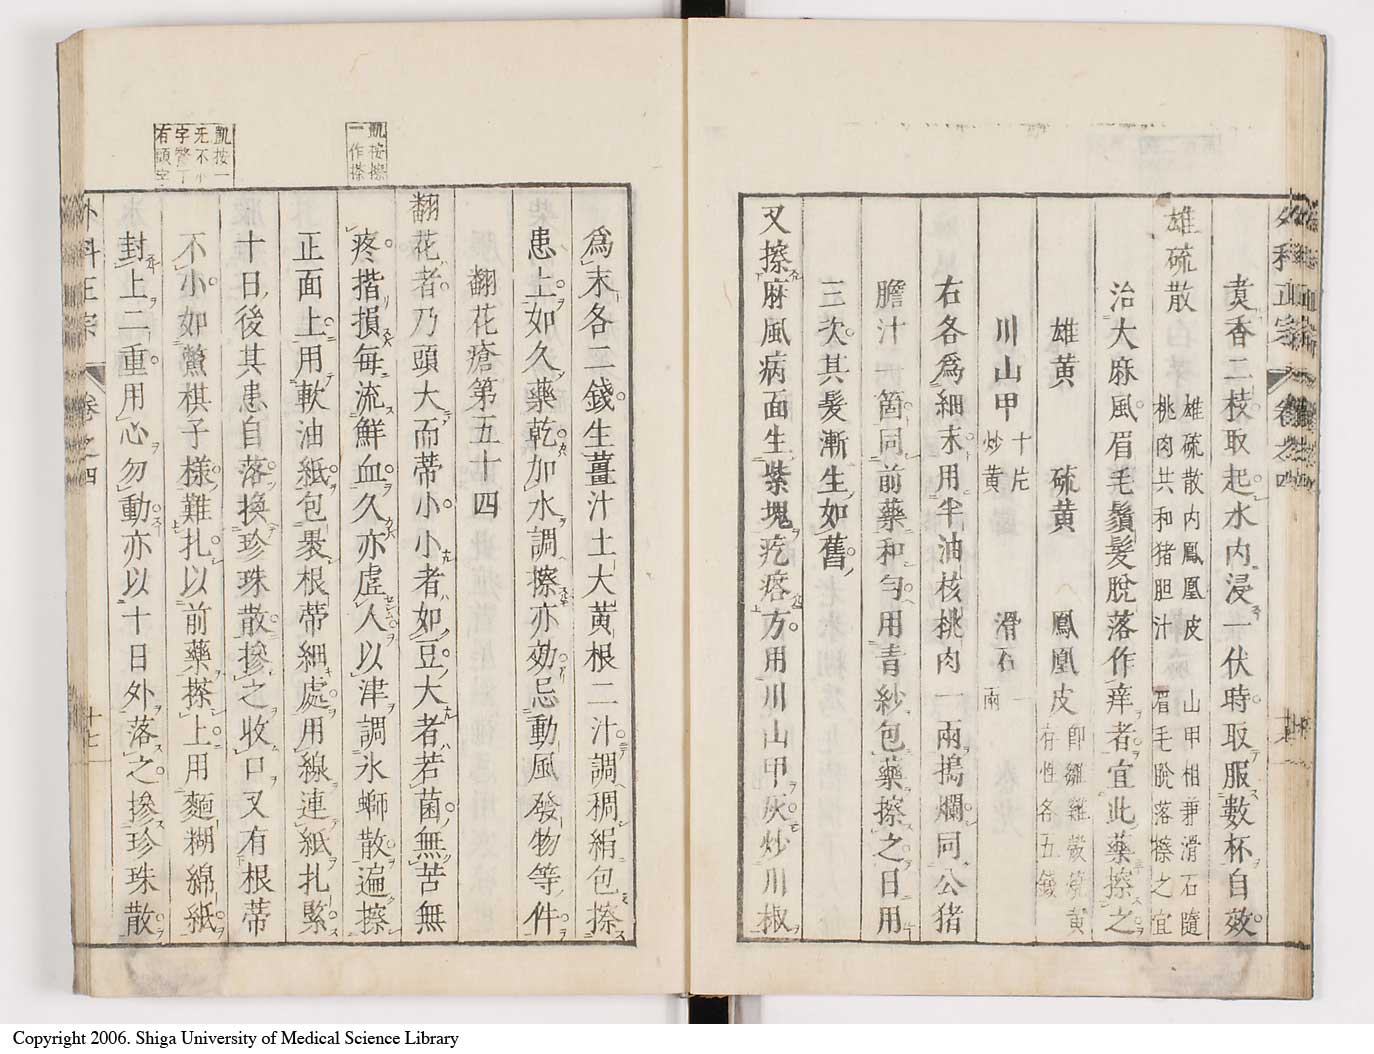 煑香二枝取起水内浸一伏時取服數杯自效
雄硫散
雄硫散内鳳凰皮 山甲相兼滑石隨
桃肉共和猪胆汁 眉毛脫落擦之宜
治大麻風眉毛鬚髮脫落作痒者宜此藥擦之
雄黃 硫黃 鳳凰皮 即雛雞殼燒黃
存性各五錢
川山甲 十片
炒黃 滑石 一
兩
右各爲細末用半油核桃肉一兩搗爛同公猪
膽汁一箇同前藥和勻用青紗包藥擦之日用
三次其髮漸生如舊
又擦麻風病面生紫塊疙瘩方用川山甲灰炒川椒
外科正宗 卷之四
爲末各二錢生薑汁土大黃根二汁調稠絹包擦
患上如久藥乾加水調擦亦効忌動風發物等件
翻花瘡第五十四
翻花者乃頭大而蒂小小者如豆大者若菌無苦無
疼揩損每流鮮血久亦虛人以津調氷螄散遍擦
正面上用軟油紙包裹根蒂細處用線連紙扎緊
十日後其患自落換珍珠散摻之收口又有根蒂
不小如鱉棋子樣難扎以前藥搽上用麵糊綿紙
封上二重用心勿動亦以十日外落之摻珍珠散
凱按擦
一作搽
凱按一
无不小
字鱉下
有頭字
外科正宗 卷之四 十七
Copyright 2006. Shiga University of Medical Science Library